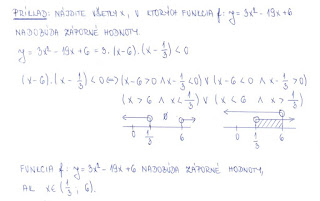 PRÍKLAD: NÁJDITE VŠETKY X, V KTORÝCH FUNKCIA f: y = 3x² - 19x + 6
NADOBÚDA ZÁPORNÉ HODNOTY.
y = 3x² - 19x + 6 = 3. (x-6).(x - 1/3) < 0
(x-6).(x - 1/3) < 0 ⇔ (x-6>0 ∧ x - 1/3 <0) ∨ (x-6<0 ∧ x - 1/3 >0)
(x > 6 ∧ x < 1/3) ∨ (x < 6 ∧ x > 1/3)
0 1/3 6 0 1/3 6
FUNKCIA f: y = 3x² - 19x + 6 NADOBÚDA ZÁPORNÉ HODNOTY,
AK x∈(1/3; 6).